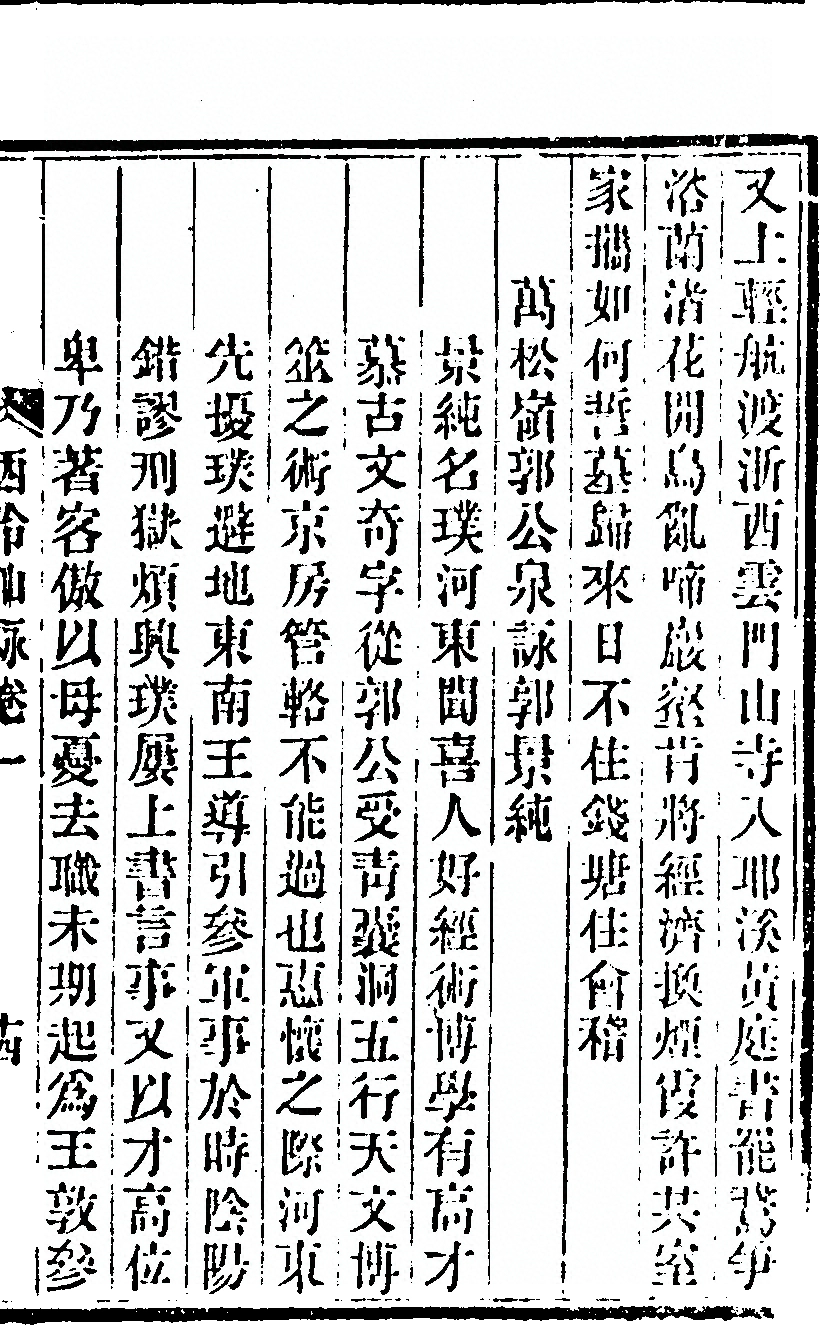 又上輕航渡浙西雲門山寺入耶溪黃庭書罷鵞爭
浴蘭渚花開鳥亂啼巖壑肯將經濟換煙霞許共室
家攜如何誓墓歸來日不住錢塘住會稽
萬松嶺郭公泉詠郭景純
景純名璞河東聞喜人好經術博學有高才
慕古文奇字從郭公受青囊洞五行天文博
筮之術京房管輅不能過也惠懷之際河東
先擾璞避地東南王導引參軍事於時陰陽
錯謬刑獄煩興璞屢上書言事又以才高位
卑乃著客傲以母憂去職未期起爲王敦參
西泠仙詠卷一